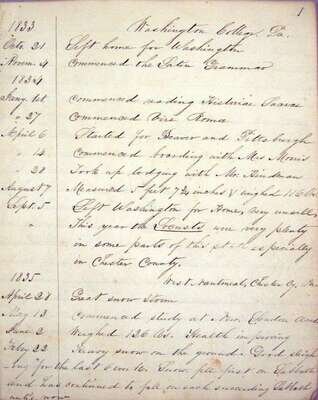 1
1833 Washington College, Pa.
Octo. 21 Left home for Washington
Novem. 4 Commenced the Latin Grammar
1834
Jany. 1st Commenced reading Historiae Sacrae
" 27 Commenced Viri Romae
April 6 Started for Beaver and Pittsburgh
" 14 Commenced boarding with Mrs Morris
" 28 Took up lodging with Mr.
August 7 Measured 5 feet 7¾ inches & weighed 116 lbs
Sept. 5 Left Washington for Home, very unwell
" This year the Locusts were very plenty
in some parts of this state especially
in Chester County.
1835 West Nantmeal, Chester Co. Pa.
April 28 Great snow storm
May 13 Commenced study at New London
June 2 Weighed 126 lbs. Health improving
Feby 22 Heavy snow on the ground. Good sleigh
ing for the last 6 weeks. Snow fell first on Sabbath
and has continued to fall on each succeeding Sabbath
until now